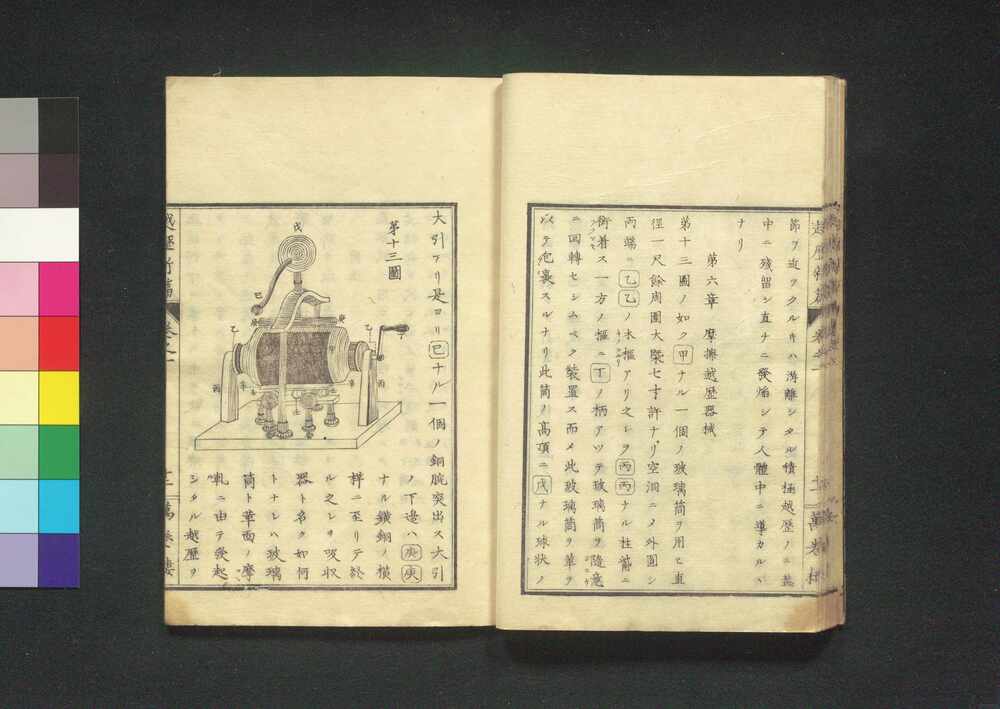 節ヲ迫ヲクル𪜈ハ游離シタル積極越歴ノ二甚
中ニ残留シ直ナニ發焔シテ人體中ニ導カルハ
ナリ
第六章 摩擦越歴器械
第十三圖ノ如ク甲ナル一個ノ玻璃筒ヲ用ヒ直
徑一尺餘周圍大槩七寸許ナリ空洞ニメ外圍シ
両端ニ乙乙ノ木樞アリ之レヲ丙丙ナル柱ニ
銜着ス一方ノ樞ニ丁ノ柄アツテ玻璃筒ヲ隨意
ニ回轉セシムベク装置ス而メ此玻璃筒ヲ革ヲ
以テ包裹スルナリ此筒ノ高頂ニ戊ナル球状ノ
大引アリ是ヨリ巳ナル一個ノ銅腕突出ス大引
第十三圖
戊
巳
乙
庚
甲
乙
丁
丙
辛
丙
ノ下邉ハ庚庚
ナル鐵銅ノ横
桿ニ至リテ終
ル之レヲ吸収
器ト名ク如何
トナレハ玻璃
筒ト革面ノ摩
軋ニ由テ發起
シタル越歴ヲ